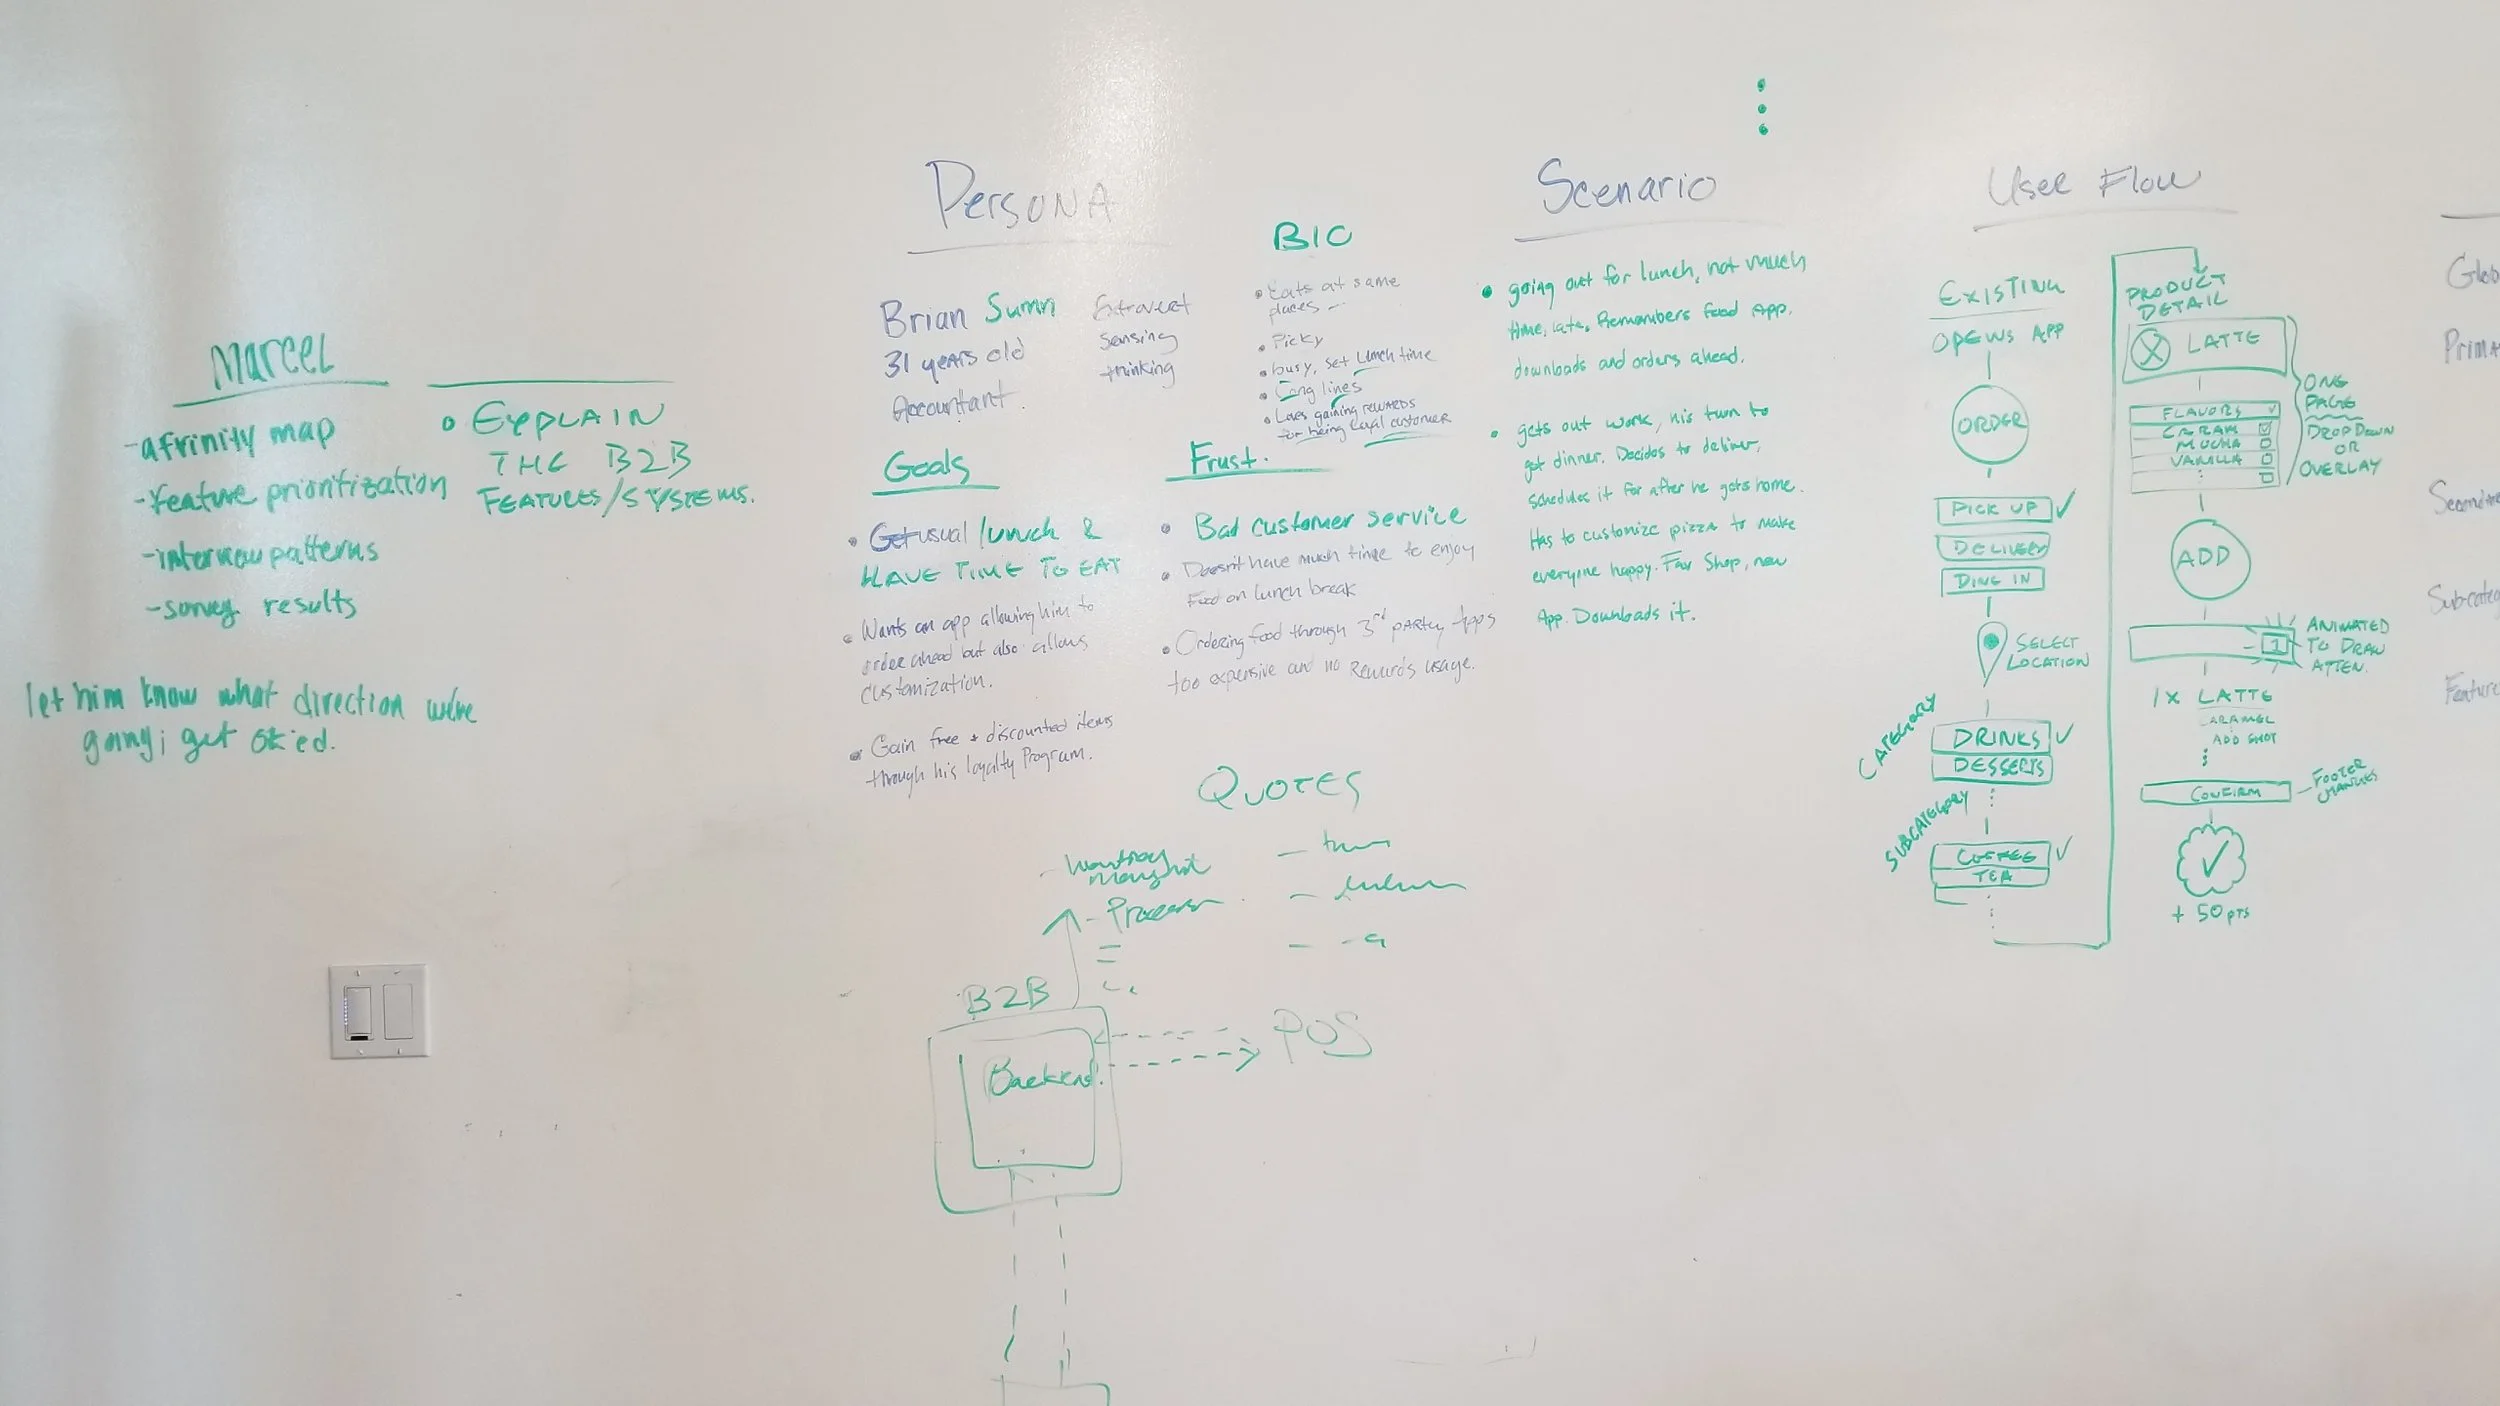 Marcel
-afrinity map
-feature prioritization
-interview patterns
-survey results
let him know what direction we're
going; get ok'ed.
• EXPLAIN
THE B2B
FEATURES/SYSTEMS.
Persona
Brian Sumn
31 years old
Accountant.
Extrovert
Sensing
thinking
BIO
• Eats at same
places -
• Picky
• busy, set Lunch time
• Long lines
• Loves gaining rewards
for being loyal customer
Goals
• Get usual lunch &
HAVE TIME TO EAT
• Wants an app allowing him to
order ahead but also allows
customization.
• Gain free & discounted items
through his loyalty Program.
Frust.
• Bad customer service
• Doesn't have much time to enjoy
Food on lunch break
• Ordering food through 3rd party Apps
too expensive and no Rewards usage.
QUOTES
B2B
Backend
POS
Scenario
• going out for lunch, not much
time, late. Remembers food App.
downloads and orders ahead.
• gets out work, his turn to
get dinner. Decides to deliver,
schedules it for after he gets home.
Has to customize pizza to make
everyone happy. Fav Shop, new
App. Downloads it.
User Flow
EXISTING
OPENS APP
ORDER
PICK UP
DELIVERY
DINE IN
SELECT
LOCATION
CATEGORY
DRINKS
DESSERTS
SUBCATEGORY
COFFEE
TEA
PRODUCT
DETAIL
LATTE
FLAVORS
MOCHA
VANILLA
ONE
PAGE
DROPDOWN
OR
OVERLAY
ADD
1
ANIMATED
TO DRAW
ATTEN.
1x LATTE
ARAMEL
ADD SHOT
CONFIRM
FOOTER
CHANGES
+ 50 pts
Glob
Prima
Feature